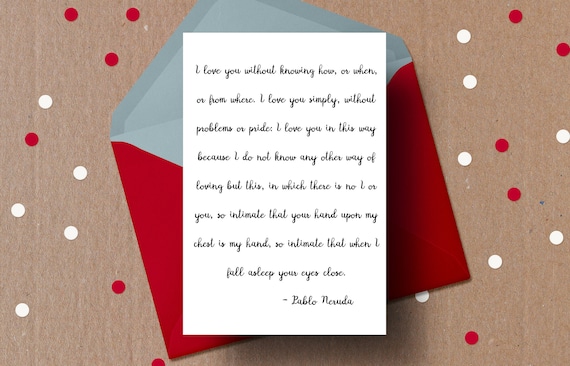 I love you without knowing how, or when,
or from where. I love you simply, without
problems or pride: I love you in this way
because I do not know any other way of
loving but this, in which there is no I or
you, so intimate that your hand upon my
chest is my hand, so intimate that when I
fall asleep your eyes close.
~ Pablo Neruda